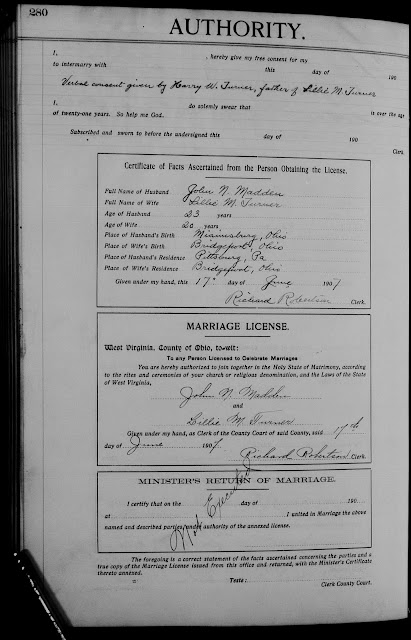 280
AUTHORITY.
I, , hereby give my free consent for my
to intermarry with this day of 190
Verbal consent given by Harry W. Turner, father of Lillie M. Turner
I, do solemnly swear that is over the age
of twenty-one years. So help me God.
Subscribed and sworn to before the undersigned this day of 190
Clerk.
Certificate of Facts Ascertained from the Person Obtaining the License.
Full Name of Husband John N. Madden
Full Name of Wife Lillie M. Turner
Age of Husband 23 years
Age of Wife 20 years
Place of Husband's Birth Miamisburg, Ohio
Place of Wife's Birth Bridgeport, Ohio
Place of Husband's Residence Pittsburg, Pa
Place of Wife's Residence Bridgeport, Ohio
Given under my hand, this 17" day of June 1907
Richard Robertson Clerk.
MARRIAGE LICENSE.
West Virginia, County of Ohio, to-wit:
To any Person Licensed to Celebrate Marriages
You are hereby authorized to join together in the Holy State of Matrimony, according
to the rites and ceremonies of your church or religious denomination, and the Laws of the State
of West Virginia,
John N. Madden
and
Lillie M. Turner
Given under my hand, as Clerk of the County Court of said County, said 17th
day of June 1907.
Richard Robertson Clerk.
MINISTER'S RETURN OF MARRIAGE.
I certify that on the day of 190
at I united in Marriage the above
named and described parties under authority of the annexed license.
Not Executed
The foregoing is a correct statement of the facts ascertained concerning the parties and a
true copy of the Marriage License issued from this office and returned, with the Minister's Certificate
thereto annexed.
Teste:
Clerk County Court.